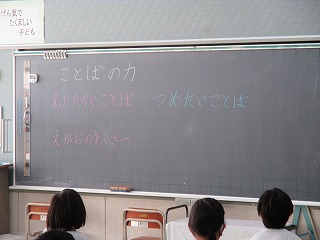 げん気で
たくましい
子ども
ことばの力
あたたかいことば　つめたいことば
えがおのあいさつ